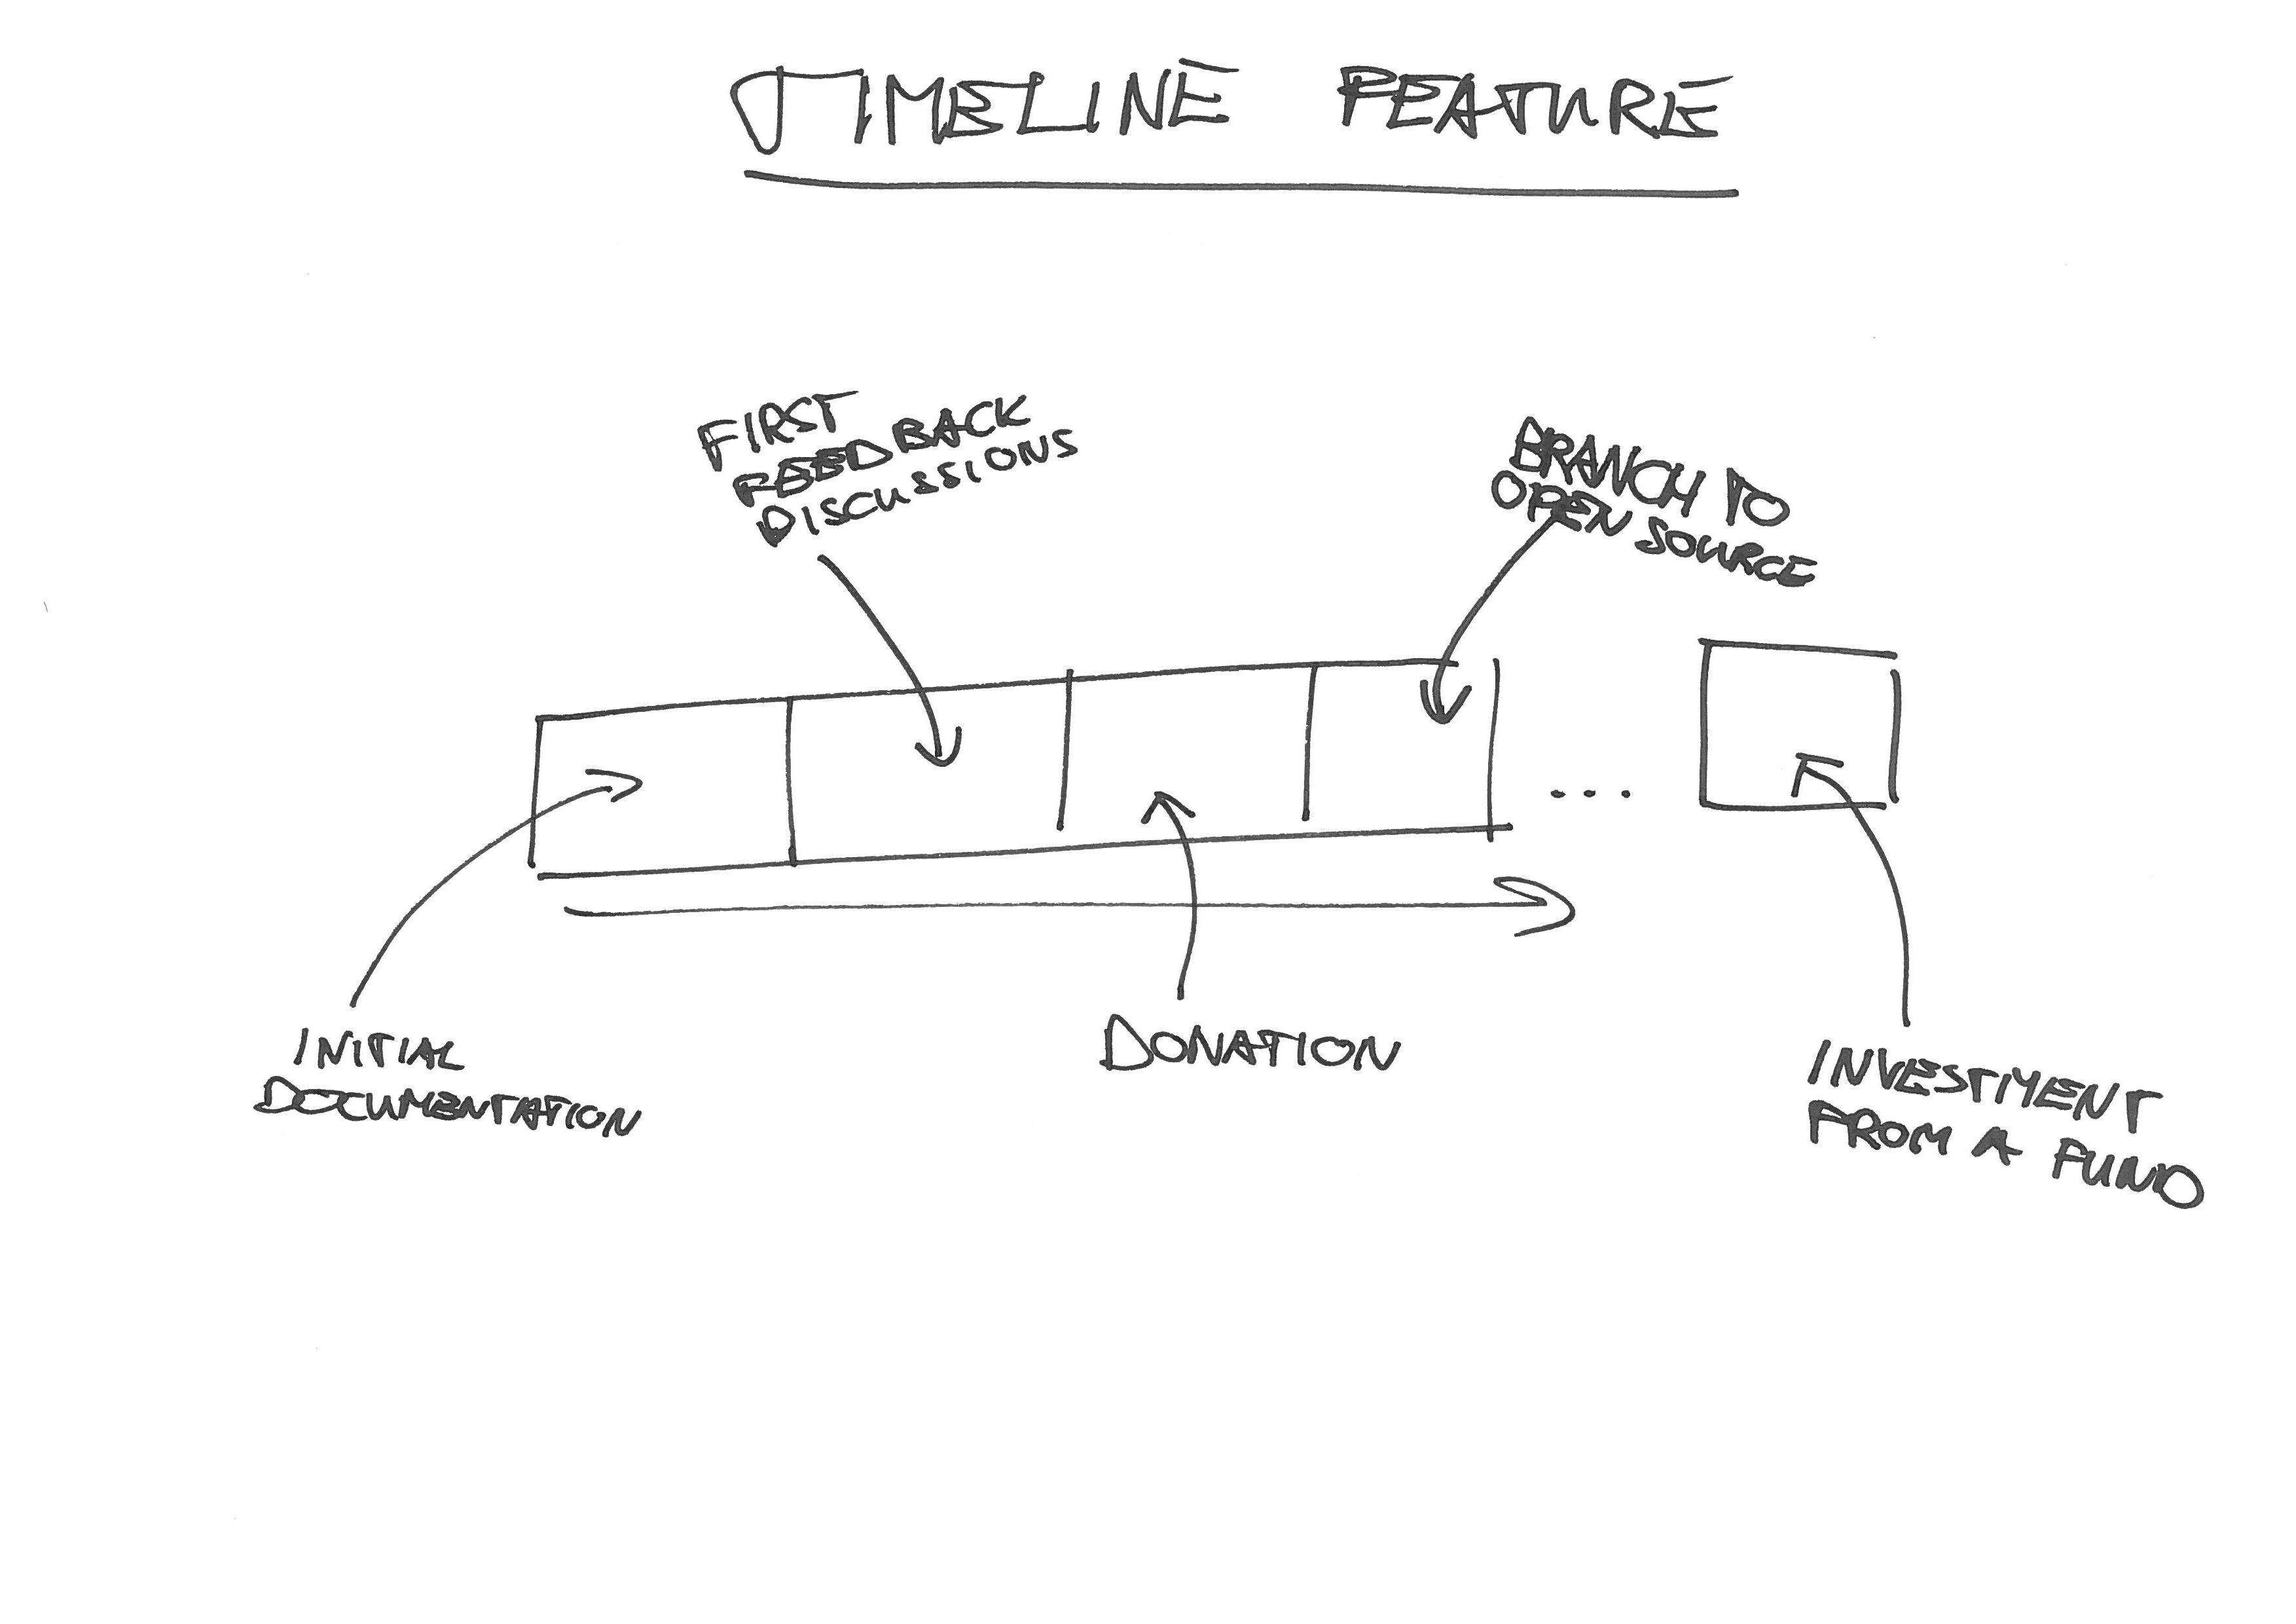 TIMELINE FEATURE
FIRST
FEEDBACK
DISCUSSIONS
BRANCH TO
OPEN SOURCE
...
INITIAL
DOCUMENTATION
DONATION
INVESTMENT
FROM A FUND